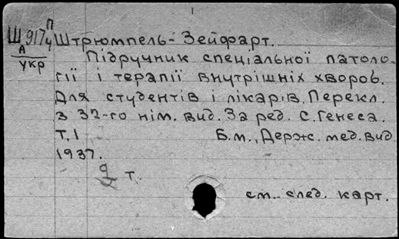 Ш 917 п/ч
А
укр
Штрюмпель-Зейфарт.
Підручник спеціальної патоло-
гії і терапії внутрішніх хвороб.
Для студентів і лікарів. Перекл.
з 32-го нім. вид. За ред. С. Генеса.
т. I Б.м., Держ. мед. вид.
1937.
т.
см. след. карт.